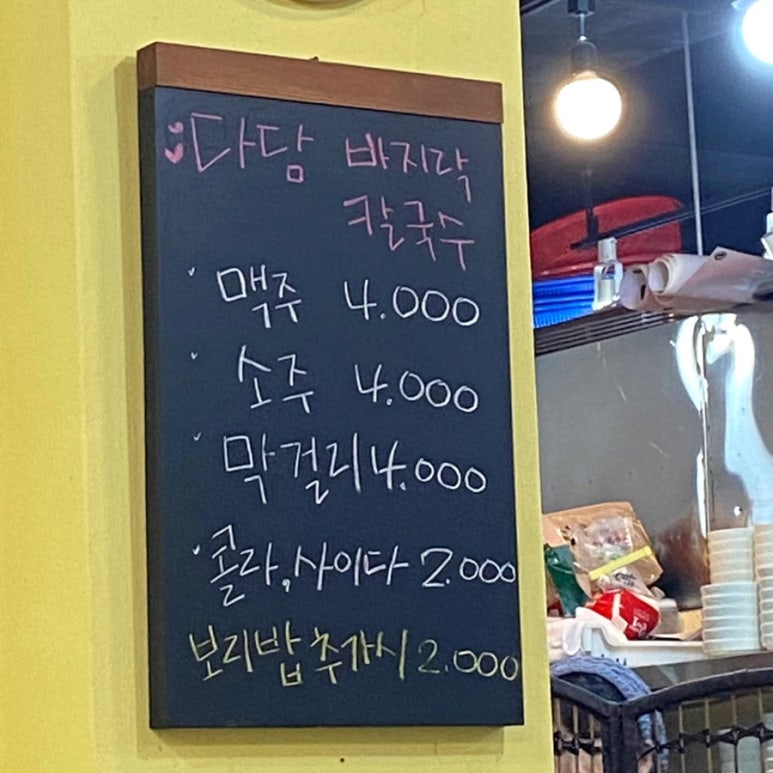 다담 바지락
칼국수
맥주 4.000
소주 4.000
막걸리 4.000
콜라,사이다 2.000
보리밥 추가시 2.000